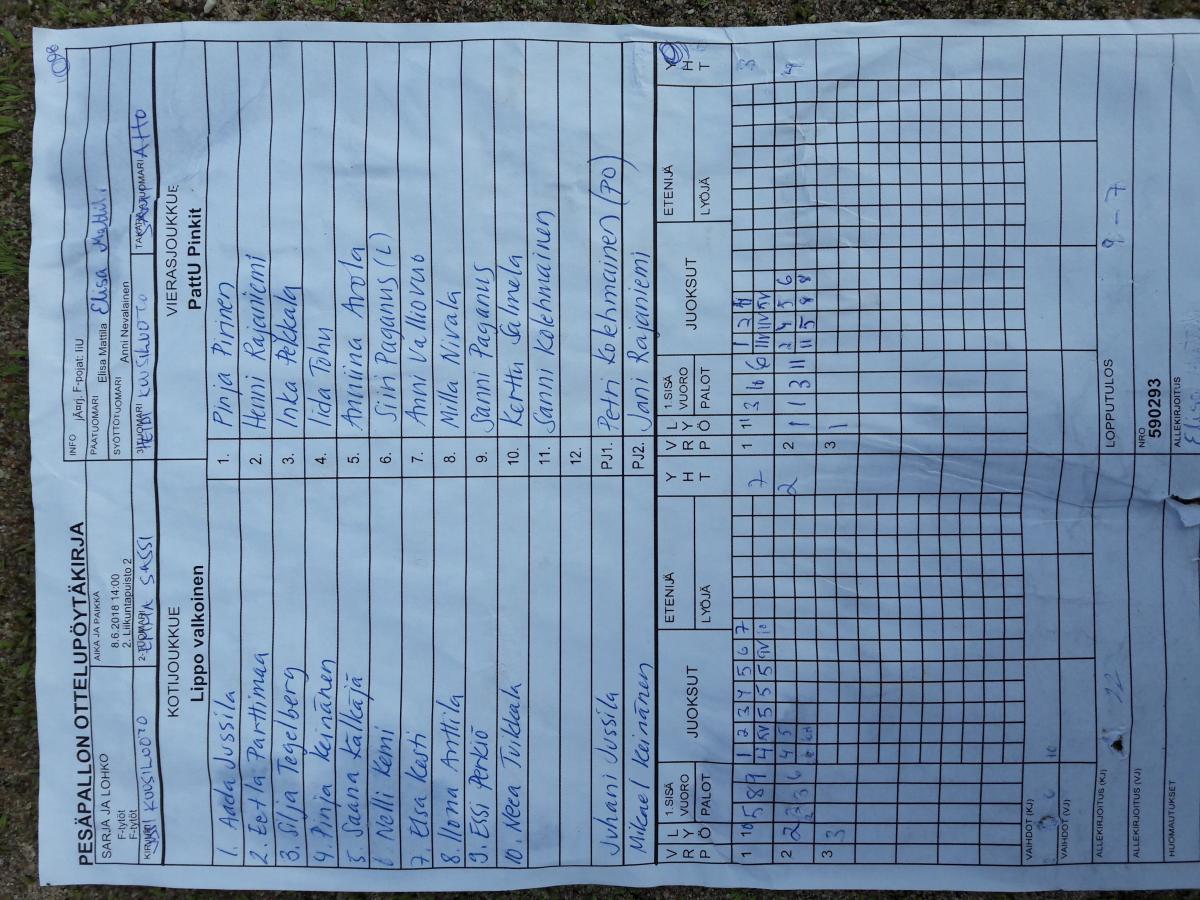 PESÄPALLON OTTELUPÖYTÄKIRJA
SARJA JA LOHKO
F-tytöt
F-tytöt
AIKA JA PAIKKA
8.6.2018 14:00
2. Liikuntapuisto 2
INFO
PÄÄTUOMARI Elisa Mattila Elisa Mattila
SYÖTTÖTUOMARI Anni Nevalainen
2-TUOMARI EMMA SASSI
KOTIJOUKKUE
Lippo valkoinen
1. Aada Jussila
2. Eetla Parttimaa
3. Silja Tegelberg
4. Pinja Keinänen
5. Saana Kälkäjä
6. Nelli Kemi
7. Elsa Kesti
8. Ilona Anttila
9. Essi Perkiö
10. Neea Tuikkala
Juhani Jussila
Mikael Keinänen
VIERASJOUKKUE
PattU Pinkit
1. Pinja Pirinen
2. Henni Rajaniemi
3. Inka Pekkala
4. Iida Tuhu
5. Anniina Arola
6. Siiri Paganus (L)
7. Anni Valliovuo
8. Milla Nivala
9. Sanni Paganus
10. Kerttu Salmela
11. Sanni Kolehmainen
12.
PJ1. Petri Kolehmainen (PO)
PJ2. Jani Rajaniemi
V L
R Y
P Ö
1.SISÄ
VUORO
PALOT
JUOKSUT
ETENIJÄ
LYÖJÄ
Y
H
T
1 10 5 8 9
1 2 3 4 5 6 7
7
2 2
4 5
2
3 3
V L
R Y
P Ö
1.SISÄ
VUORO
PALOT
JUOKSUT
ETENIJÄ
LYÖJÄ
Y
H
T
1 11 3 10 6
2 1 1 3 11
2 4 5 6
3 1
VAIHDOT (KJ)
VAIHDOT (VJ)
LOPPUTULOS 9 - 7
ALLEKIRJOITUS (KJ)
ALLEKIRJOITUS (VJ)
NRO
590293
HUOMAUTUKSET
ALLEKIRJOITUS